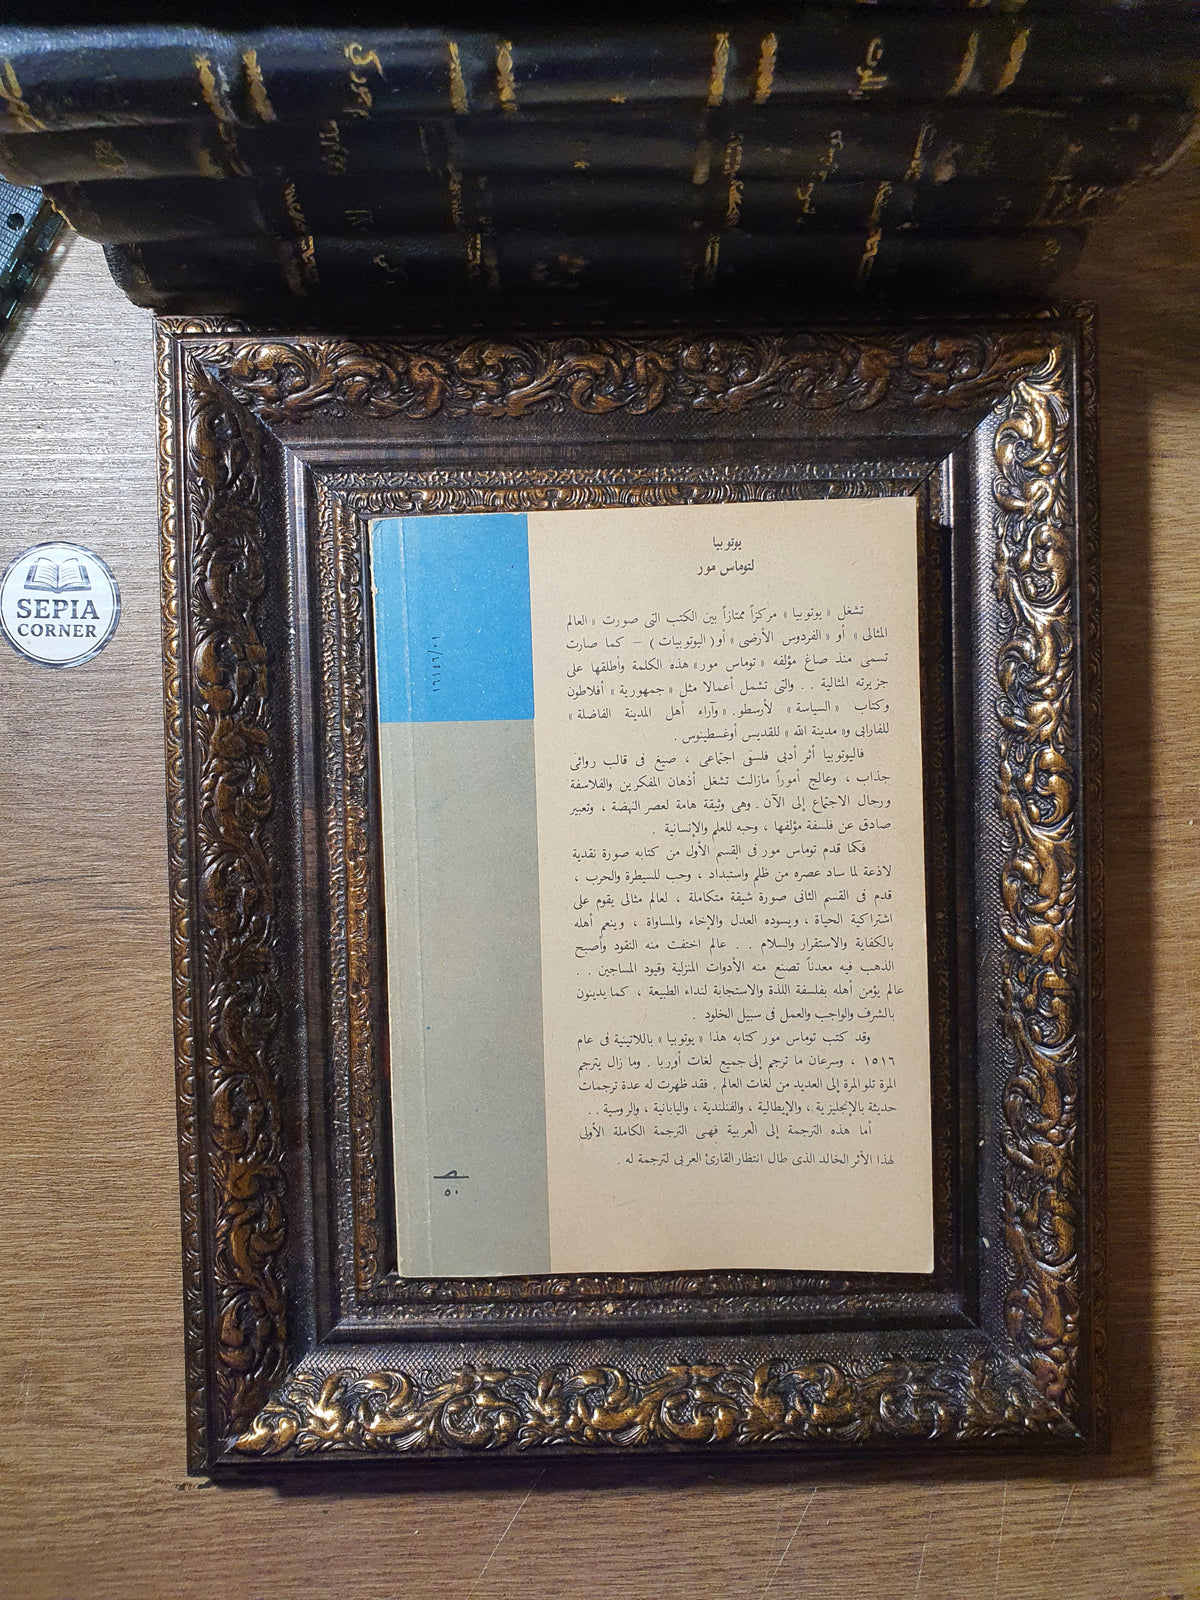 SEPIA
CORNER
يوتوبيا
لتوماس مور
تشغل « يوتوبيا » مركزاً ممتازاً بين الكتب التى صورت « العالم
المثالى » أو « الفردوس الأرضى » أو ( اليوتوبيات ) – كما صارت
تسمى منذ صاغ مؤلفه « توماس مور » هذه الكلمة وأطلقها على
جزيرته المثالية . . والتى تشمل أعمالا مثل « جمهورية » أفلاطون
وكتاب « السياسة » لأرسطو . « وآراء أهل المدينة الفاضلة »
للفارابى و« مدينة الله » للقديس أوغسطينوس .
فاليوتوبيا أثر أدبى فلسفى اجتماعى ، صيغ فى قالب روائى
جذاب ، وعالج أموراً مازالت تشغل أذهان المفكرين والفلاسفة
ورجال الاجتماع إلى الآن . وهى وثيقة هامة لعصر النهضة ، وتعبير
صادق عن فلسفة مؤلفها ، وحبه للعلم والإنسانية .
فكما قدم توماس مور فى القسم الأول من كتابه صورة نقدية
لاذعة لما ساد عصره من ظلم واستبداد ، وحب للسيطرة والحرب ،
قدم فى القسم الثانى صورة شيقة متكاملة ، لعالم مثالى يقوم على
اشتراكية الحياة ، ويسوده العدل والإخاء والمساواة ، وينعم أهله
بالكفاية والاستقرار والسلام . . عالم اختفت منه النقود وأصبح
الذهب فيه معدناً تصنع منه الأدوات المنزلية وقيود المساجين . .
عالم يؤمن أهله بفلسفة اللذة والاستجابة لنداء الطبيعة ، كما يدينون
بالشرف والواجب والعمل فى سبيل الخلود .
وقد كتب توماس مور كتابه هذا « يوتوبيا » باللاتينية فى عام
١٥١٦ ، وسرعان ما ترجم إلى جميع لغات أوربا . وما زال يترجم
المرة تلو المرة إلى العديد من لغات العالم . فقد ظهرت له عدة ترجمات
حديثة بالإنجليزية ، والإيطالية ، والفنلندية ، واليابانية ، والروسية . .
أما هذه الترجمة إلى العربية فهى الترجمة الكاملة الأولى
لهذا الأثر الخالد الذى طال انتظار القارئ العربى لترجمة له .
٥٠